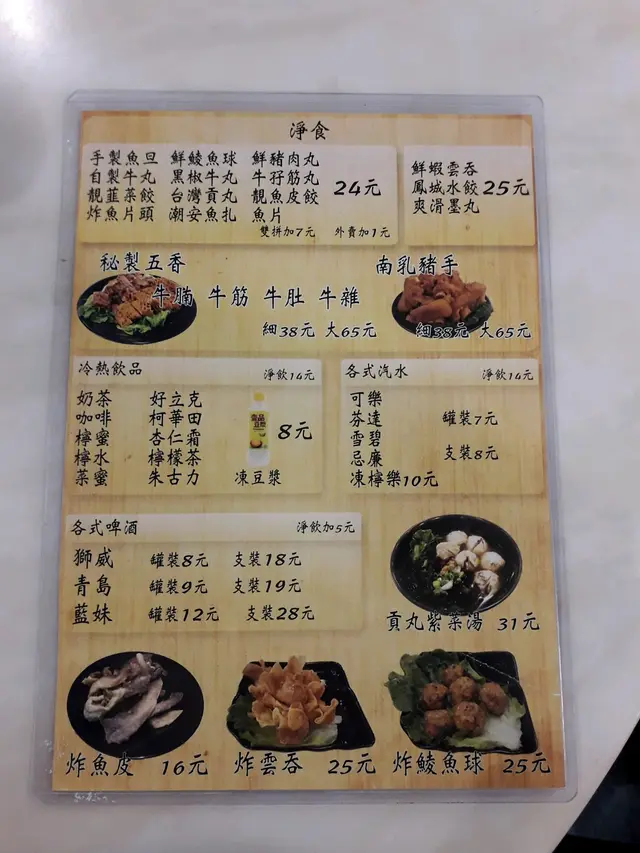 淨食
手製魚旦 鮮鯪魚球 鮮豬肉丸
自製牛丸 黑椒牛丸 牛孖筋丸
靚韮菜餃 台灣貢丸 靚魚皮餃
炸魚片頭 潮安魚扎 魚片
24元
雙拼加7元 外賣加1元
鮮蝦雲吞
鳳城水餃
爽滑墨丸
25元
秘製五香
牛腩 牛筋 牛肚 牛雜
細38元 大65元
南乳豬手
細38元 大65元
冷熱飲品 淨飲14元
奶茶 好立克
咖啡 柯華田
檸蜜 杏仁霜
檸水 檸檬茶
菜蜜 朱古力
8元
凍豆漿
各式汽水 淨飲14元
可樂
芬達
雪碧
忌廉
罐裝7元
支裝8元
凍檸樂10元
各式啤酒 淨飲加5元
獅威 罐裝8元 支裝18元
青島 罐裝9元 支裝19元
藍妹 罐裝12元 支裝28元
貢丸紫菜湯 31元
炸魚皮 16元
炸雲吞 25元
炸鯪魚球 25元